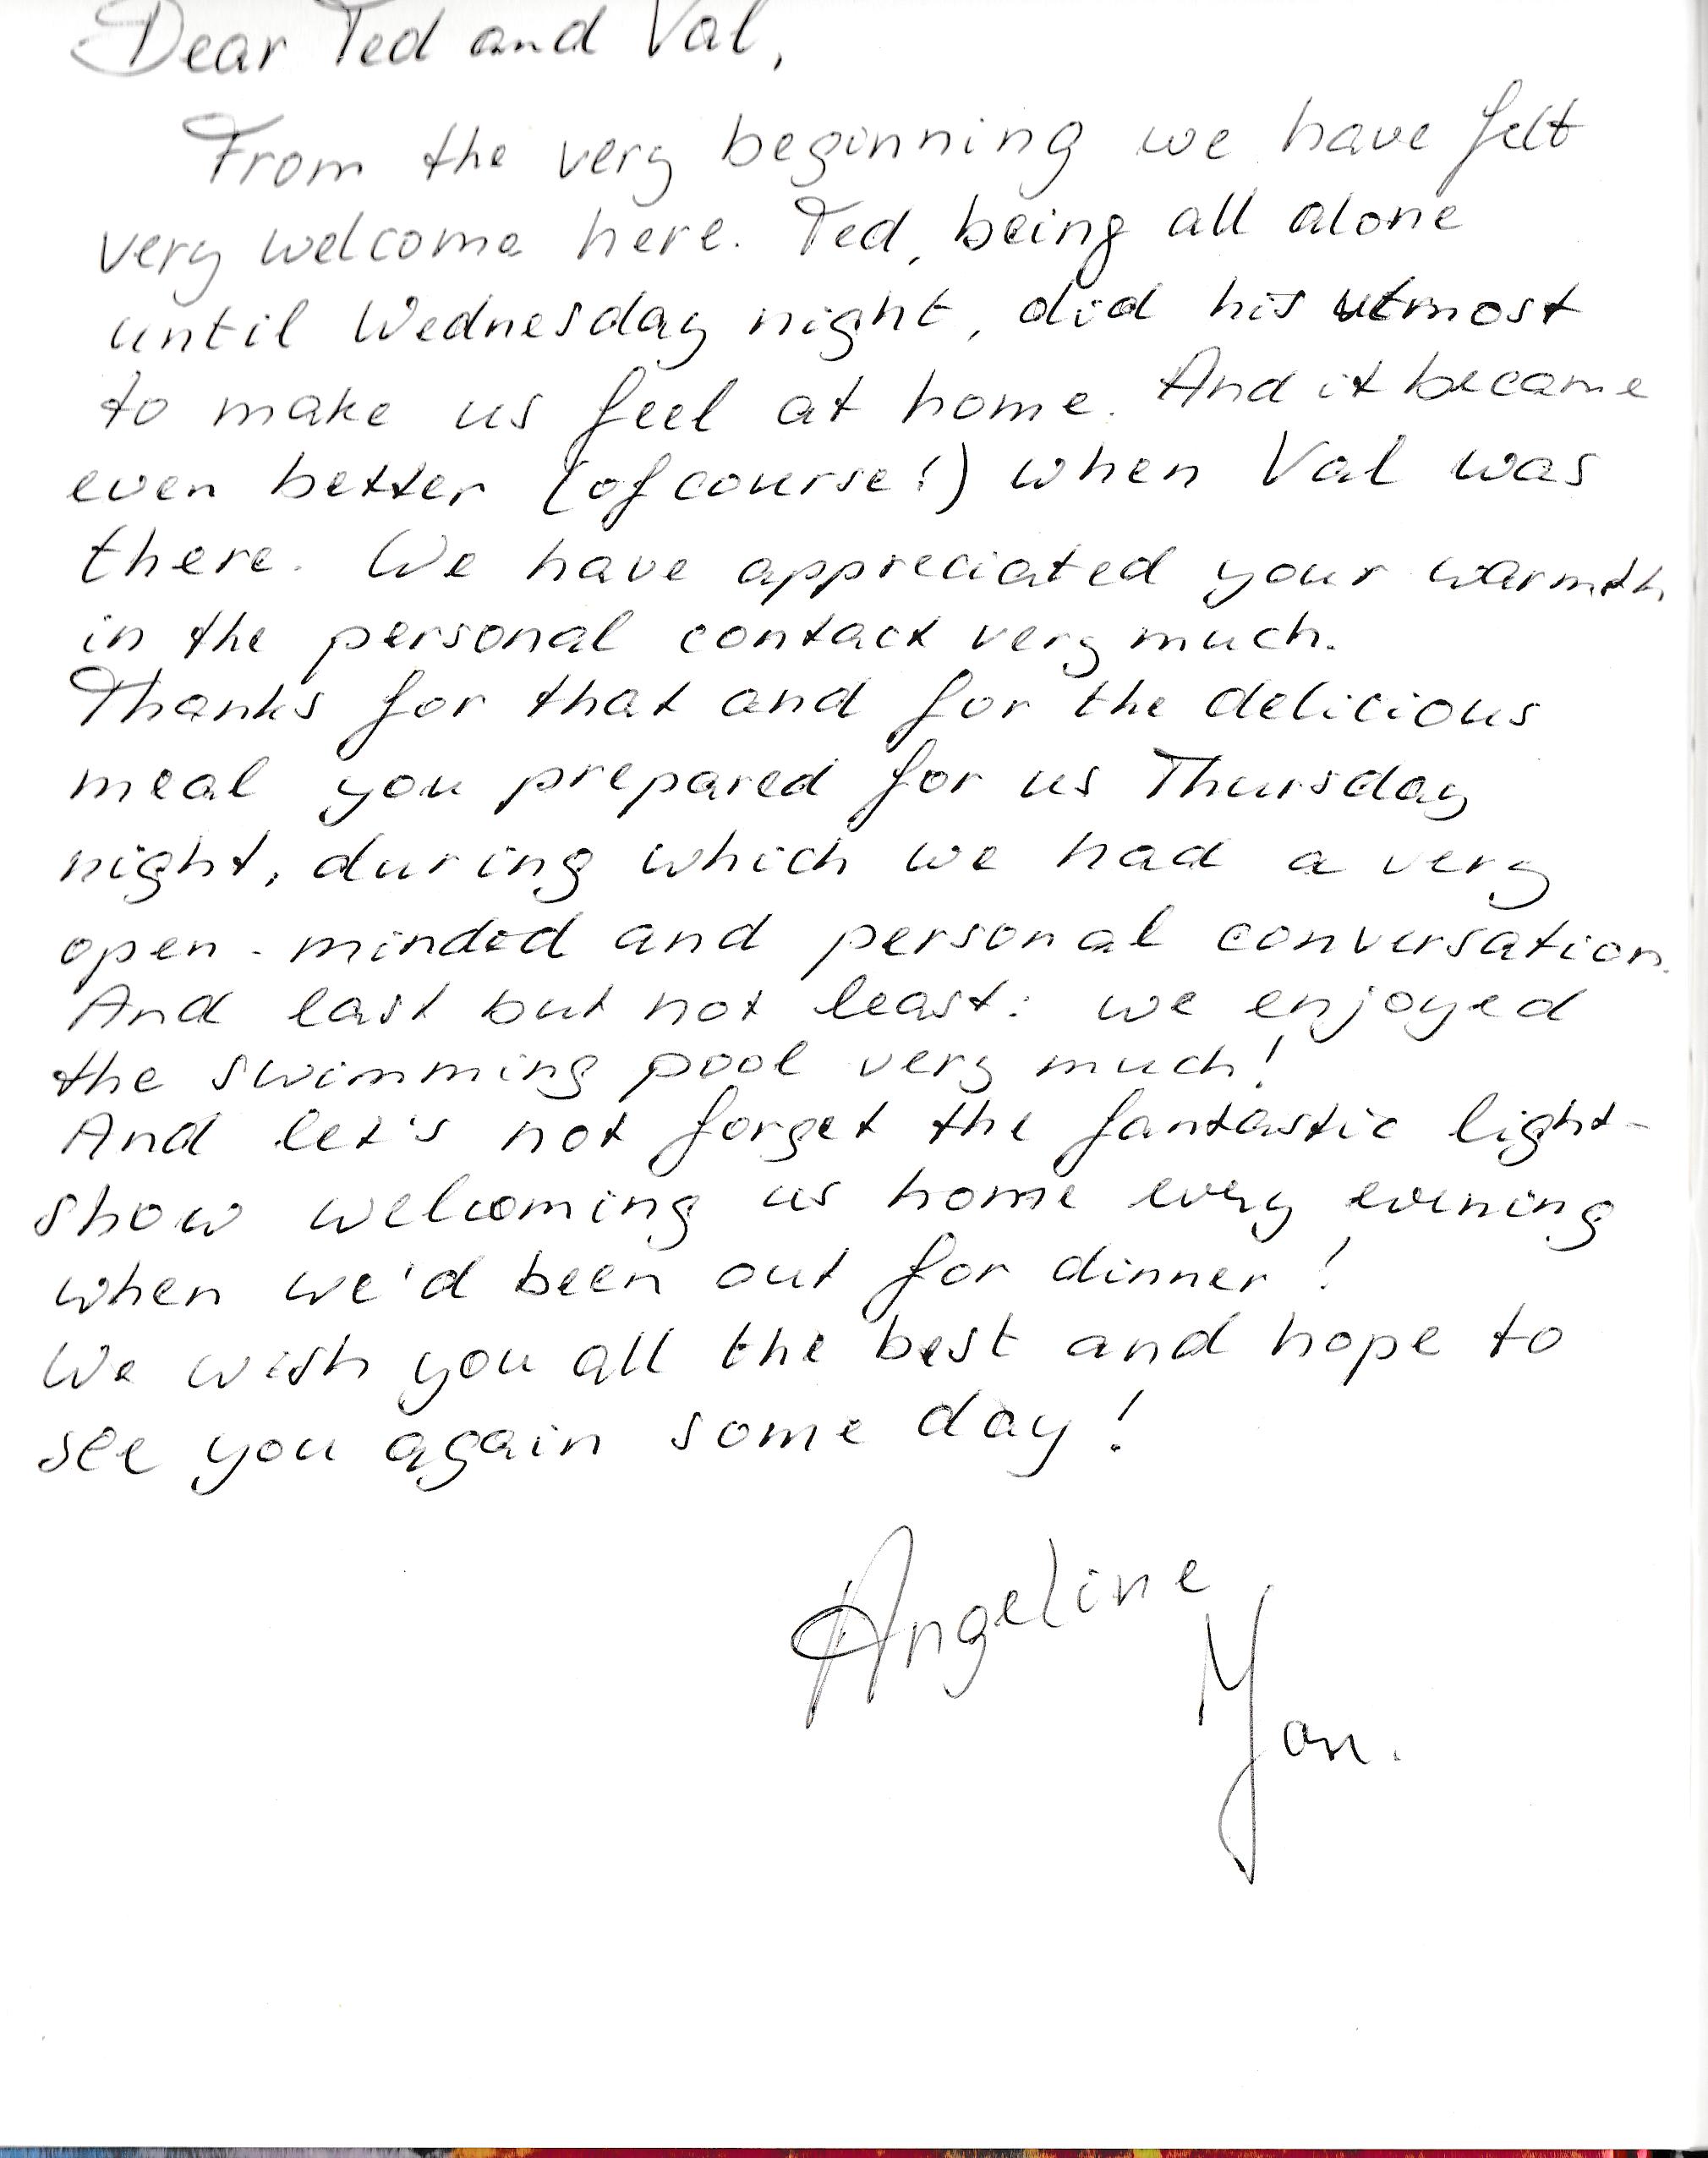 Dear Ted and Val,
From the very beginning we have felt
very welcome here. Ted, being all alone
until Wednesday night, did his utmost
to make us feel at home. And it became
even better (of course!) when Val was
there. We have appreciated your warmth
in the personal contact very much.
Thanks for that and for the delicious
meal you prepared for us Thursday
night, during which we had a very
open-minded and personal conversation.
And last but not least: we enjoyed
the swimming pool very much!
And let's not forget the fantastic light-
show welcoming us home every evening
when we'd been out for dinner!
We wish you all the best and hope to
see you again some day!
Angeline